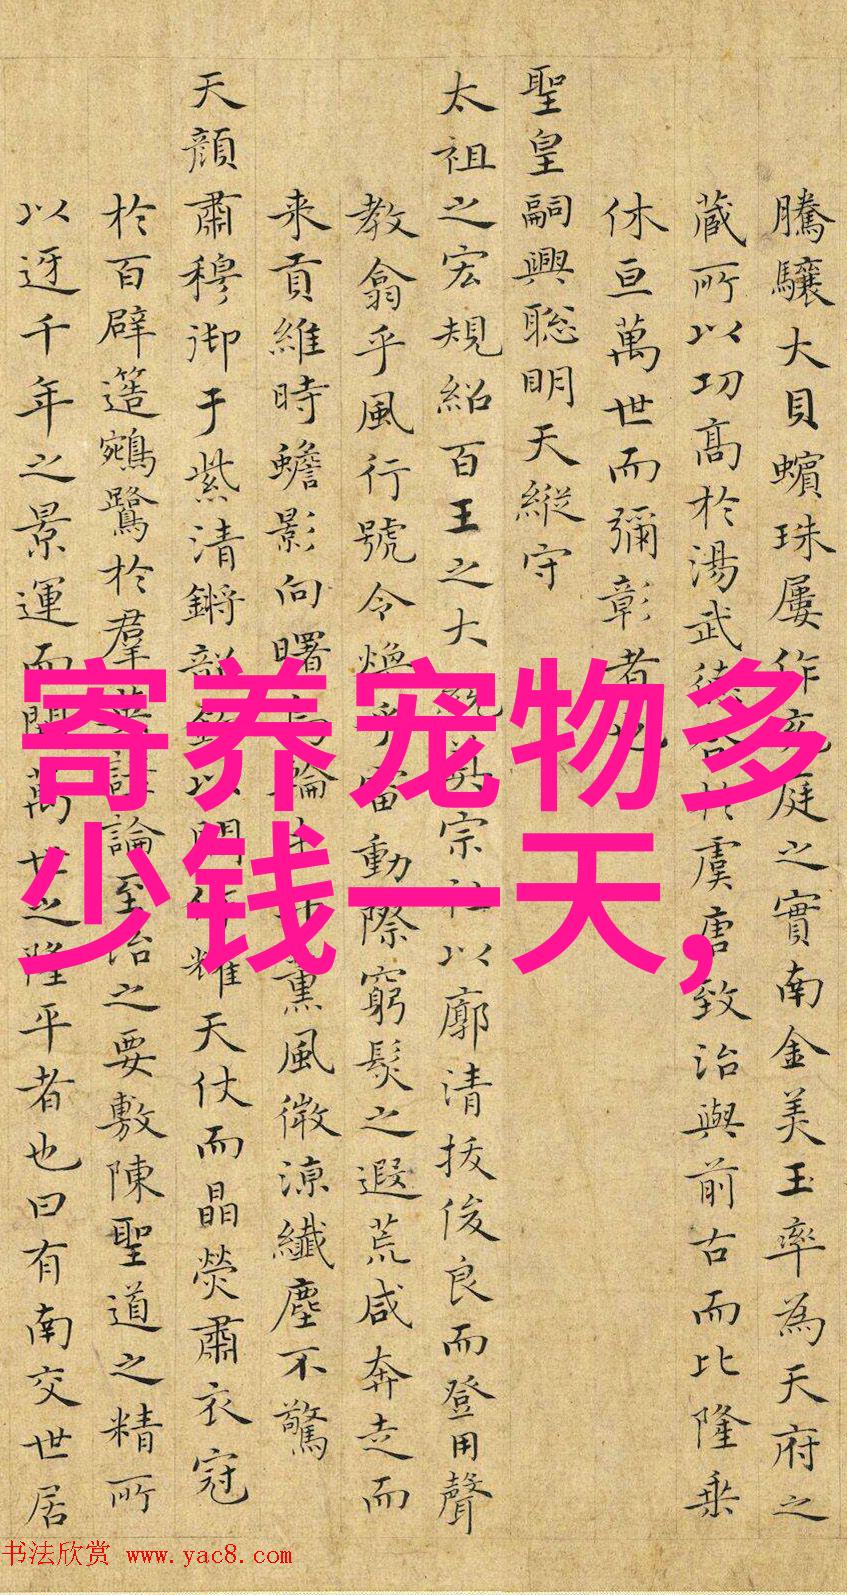 騰驤大貝蠙珠屢作充庭之實南金美玉率為天府之
藏所以功高於湯武德合於虞唐致治與前古而比隆乘
休亘萬世而彌彰者也
聖皇嗣興聰明天縱守
太祖之宏規紹百王之大統奠宗社以廓清拔俊良而登用聲
教翕乎風行號令煥乎雷動際窮髮之遐荒咸奔走而
来貢維時蟾影向曙烏輪未升薰風微涼纖塵不驚
天顏肅穆御于紫清鏘韶以閒作耀天仗而晶熒肅衣冠
於百辟簉鵷鷺於羣英討論至治之要敷陳聖道之精所
以迓千年之景運而開萬世之隆平者也曰有南交世居
寄养宠物多
少钱一天,
书法欣赏 www.yac8.com